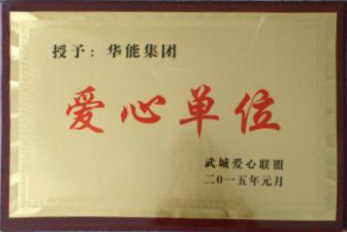 授予：华能集团
爱心单位
武城爱心联盟
二〇一五年元月